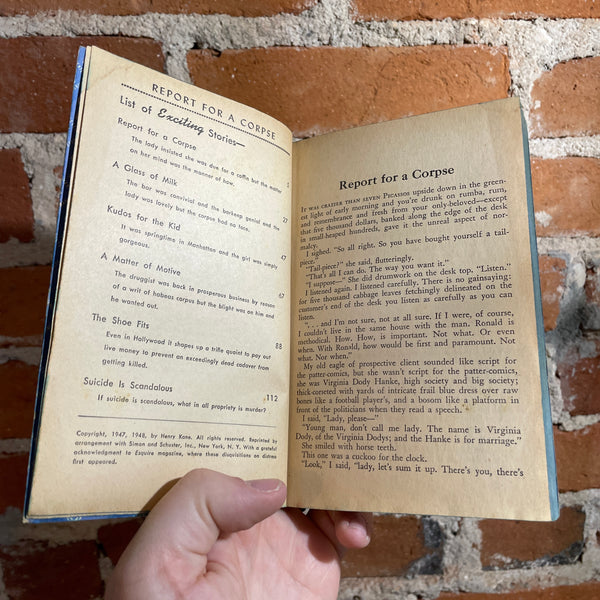 REPORT FOR A CORPSE
List of Exciting Stories—
Report for a Corpse
The lady insisted she was due for a coffin but the matter
on her mind was the manner of how.
5
A Glass of Milk
The bar was convivial and the barkeep genial and the
lady was lovely but the corpse had no face.
27
Kudos for the Kid
It was springtime in Manhattan and the girl was simply
gorgeous.
47
A Matter of Motive
The druggist was back in prosperous business by reason
of a writ of habeas corpus but the blight was on him and
he wanted out.
67
The Shoe Fits
Even in Hollywood it shapes up a trifle quaint to pay out
live money to prevent an exceedingly dead cadaver from
getting killed.
88
Suicide Is Scandalous
If suicide is scandalous, what in all propriety is murder?
112
Copyright, 1947, 1948, by Henry Kane. All rights reserved. Reprinted by
arrangement with Simon and Schuster, Inc., New York, N. Y. With a grateful
acknowledgment to Esquire magazine, where these disquisitions on distress
first appeared.
Report for a Corpse
IT WAS CRAZIER THAN SEVEN PICASSOS upside down in the green-
est light of early morning and you're drunk on rumba, rum,
and remembrance and fresh from your only-beloved—except
that five thousand dollars, banked along the edge of the desk
in small-heaped hundreds, gave it the unreal aspect of nor-
malcy.
I sighed. "So all right. So you have bought yourself a tail-
piece."
"Tail-piece?" she said, flutteringly.
"That's all I can do. The way you want it."
"I suppose—" She did drumwork on the desk top. "Listen."
I listened again. I listened carefully. There is no gainsaying:
for five thousand cabbage leaves fetchingly delineated on the
customer's end of the desk you listen as carefully as you can
listen.
". . . and I'm not sure, not at all sure. If I were, of course,
I couldn't live in the same house with the man. Ronald is
methodical. How, How, is important. Not what. Or even
when. With Ronald, how would be first and paramount. Not
what. Nor when."
My old eagle of prospective client sounded like script for
the patter-comics, but she wasn't script for the patter-comics,
she was Virginia Dody Hanke, high society and big society;
thick-corseted with yards of intricate frail blue dress over raw
bones like a football player's, and a bosom like a platform in
front of the politicians when they read a speech.
I said, "Lady, please—"
"Young man, don't call me lady. The name is Virginia
Dody, of the Virginia Dodys; and the Hanke is for marriage."
She smiled with horse teeth.
This one was a cuckoo for the clock.
"Look," I said, "lady, let's sum it up. There's you, there's